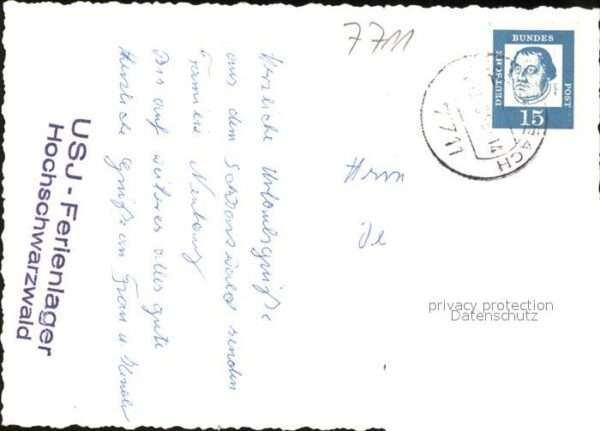 7711
DEUTSCHE
BUNDES
POST
15
7711
ACH
Herrn
privacy protection
Datenschutz
Herzliche Urlaubsgrüße
aus dem Schwarzwald senden
Familie
Bis auf weiteres alles gute
Herzliche Grüße an Frau u. Kinder
USJ - Ferienlager
Hochschwarzwald